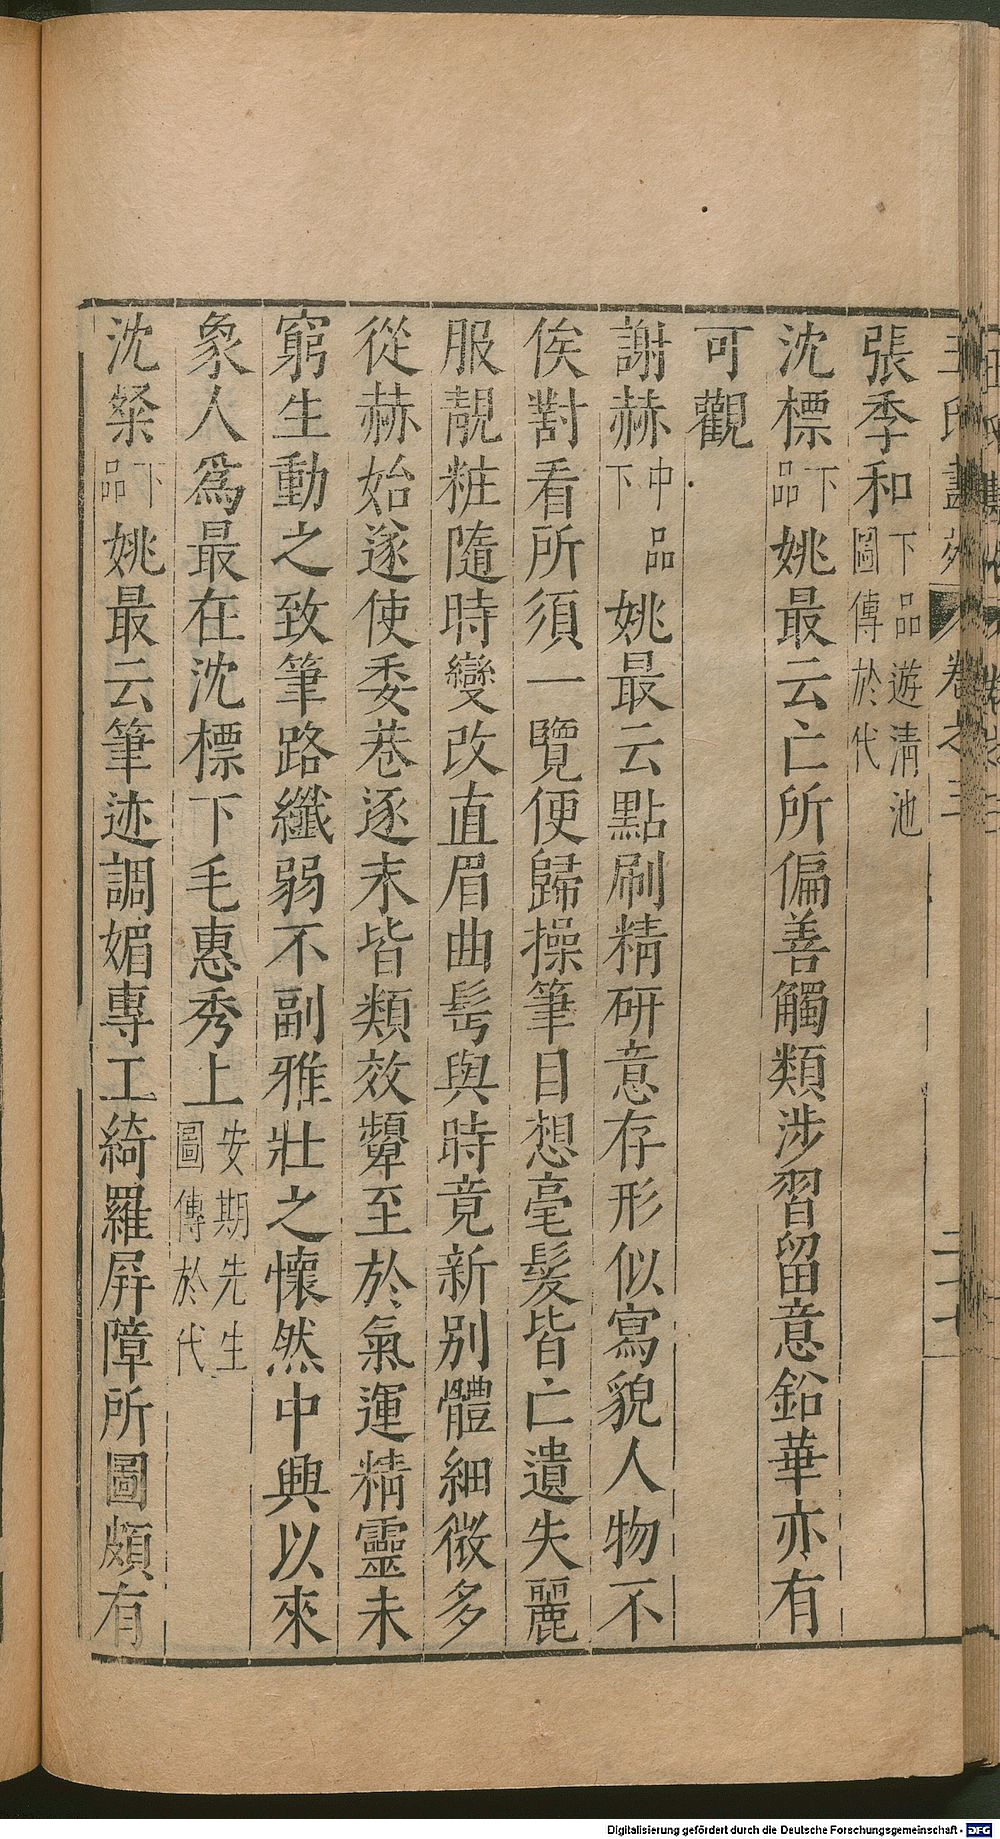 王氏畫苑 卷之三 二十七
張季和下品遊清池圖傳於代
沈標下品姚最云亡所偏善觸類涉習留意鉛華亦有
可觀
謝赫中品下姚最云點刷精研意存形似寫貌人物不
俟對看所須一覽便歸操筆目想毫髮皆亡遺失麗
服靚粧隨時變改直眉曲髩與時竟新別體細微多
從赫始遂使委巷逐末皆類效顰至於氣運精靈未
窮生動之致筆路纖弱不副雅壯之懷然中興以來
象人爲最在沈標下毛惠秀上安期先生圖傳於代
沈粲下品姚最云筆迹調媚專工綺羅屛障所圖頗有
Digitalisierung gefördert durch die Deutsche Forschungsgemeinschaft - DFG